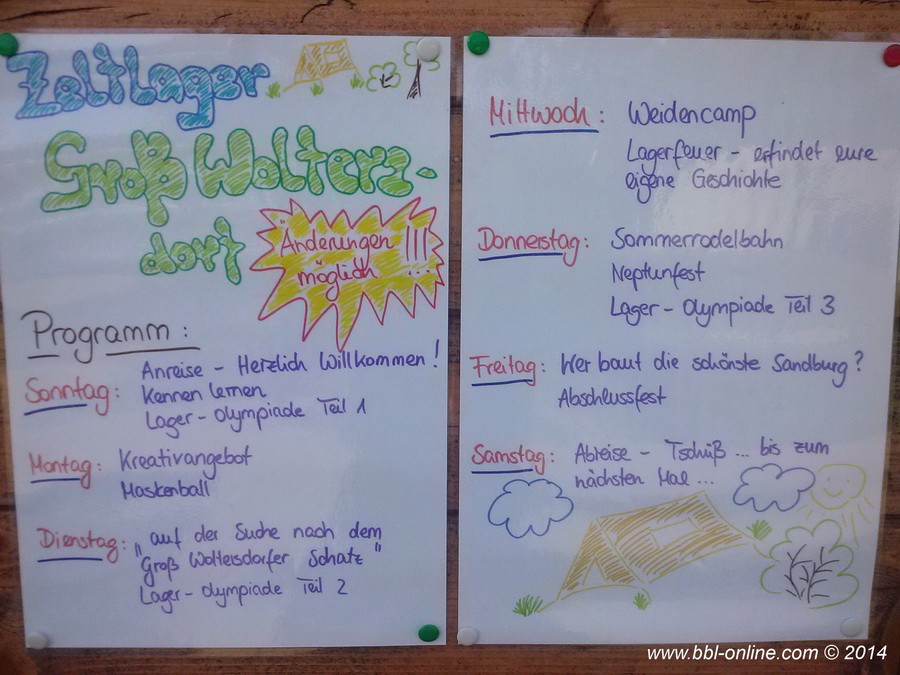 Zeltlager
Groß Wolters-
dorf
Änderungen !!!
möglich ...
Programm:
Sonntag: Anreise - Herzlich Willkommen!
Kennen lernen
Lager-Olympiade Teil 1
Montag: Kreativangebot
Maskenball
Dienstag: "auf der Suche nach dem
Groß Woltersdorfer Schatz"
Lager-Olympiade Teil 2
Mittwoch: Weidencamp
Lagerfeuer - erfindet eure
eigene Geschichte
Donnerstag: Sommerrodelbahn
Neptunfest
Lager-Olympiade Teil 3
Freitag: Wer baut die schönste Sandburg?
Abschlussfest
Samstag: Abreise - Tschüß ... bis zum
nächsten Mal ...
www.bbl-online.com © 2014